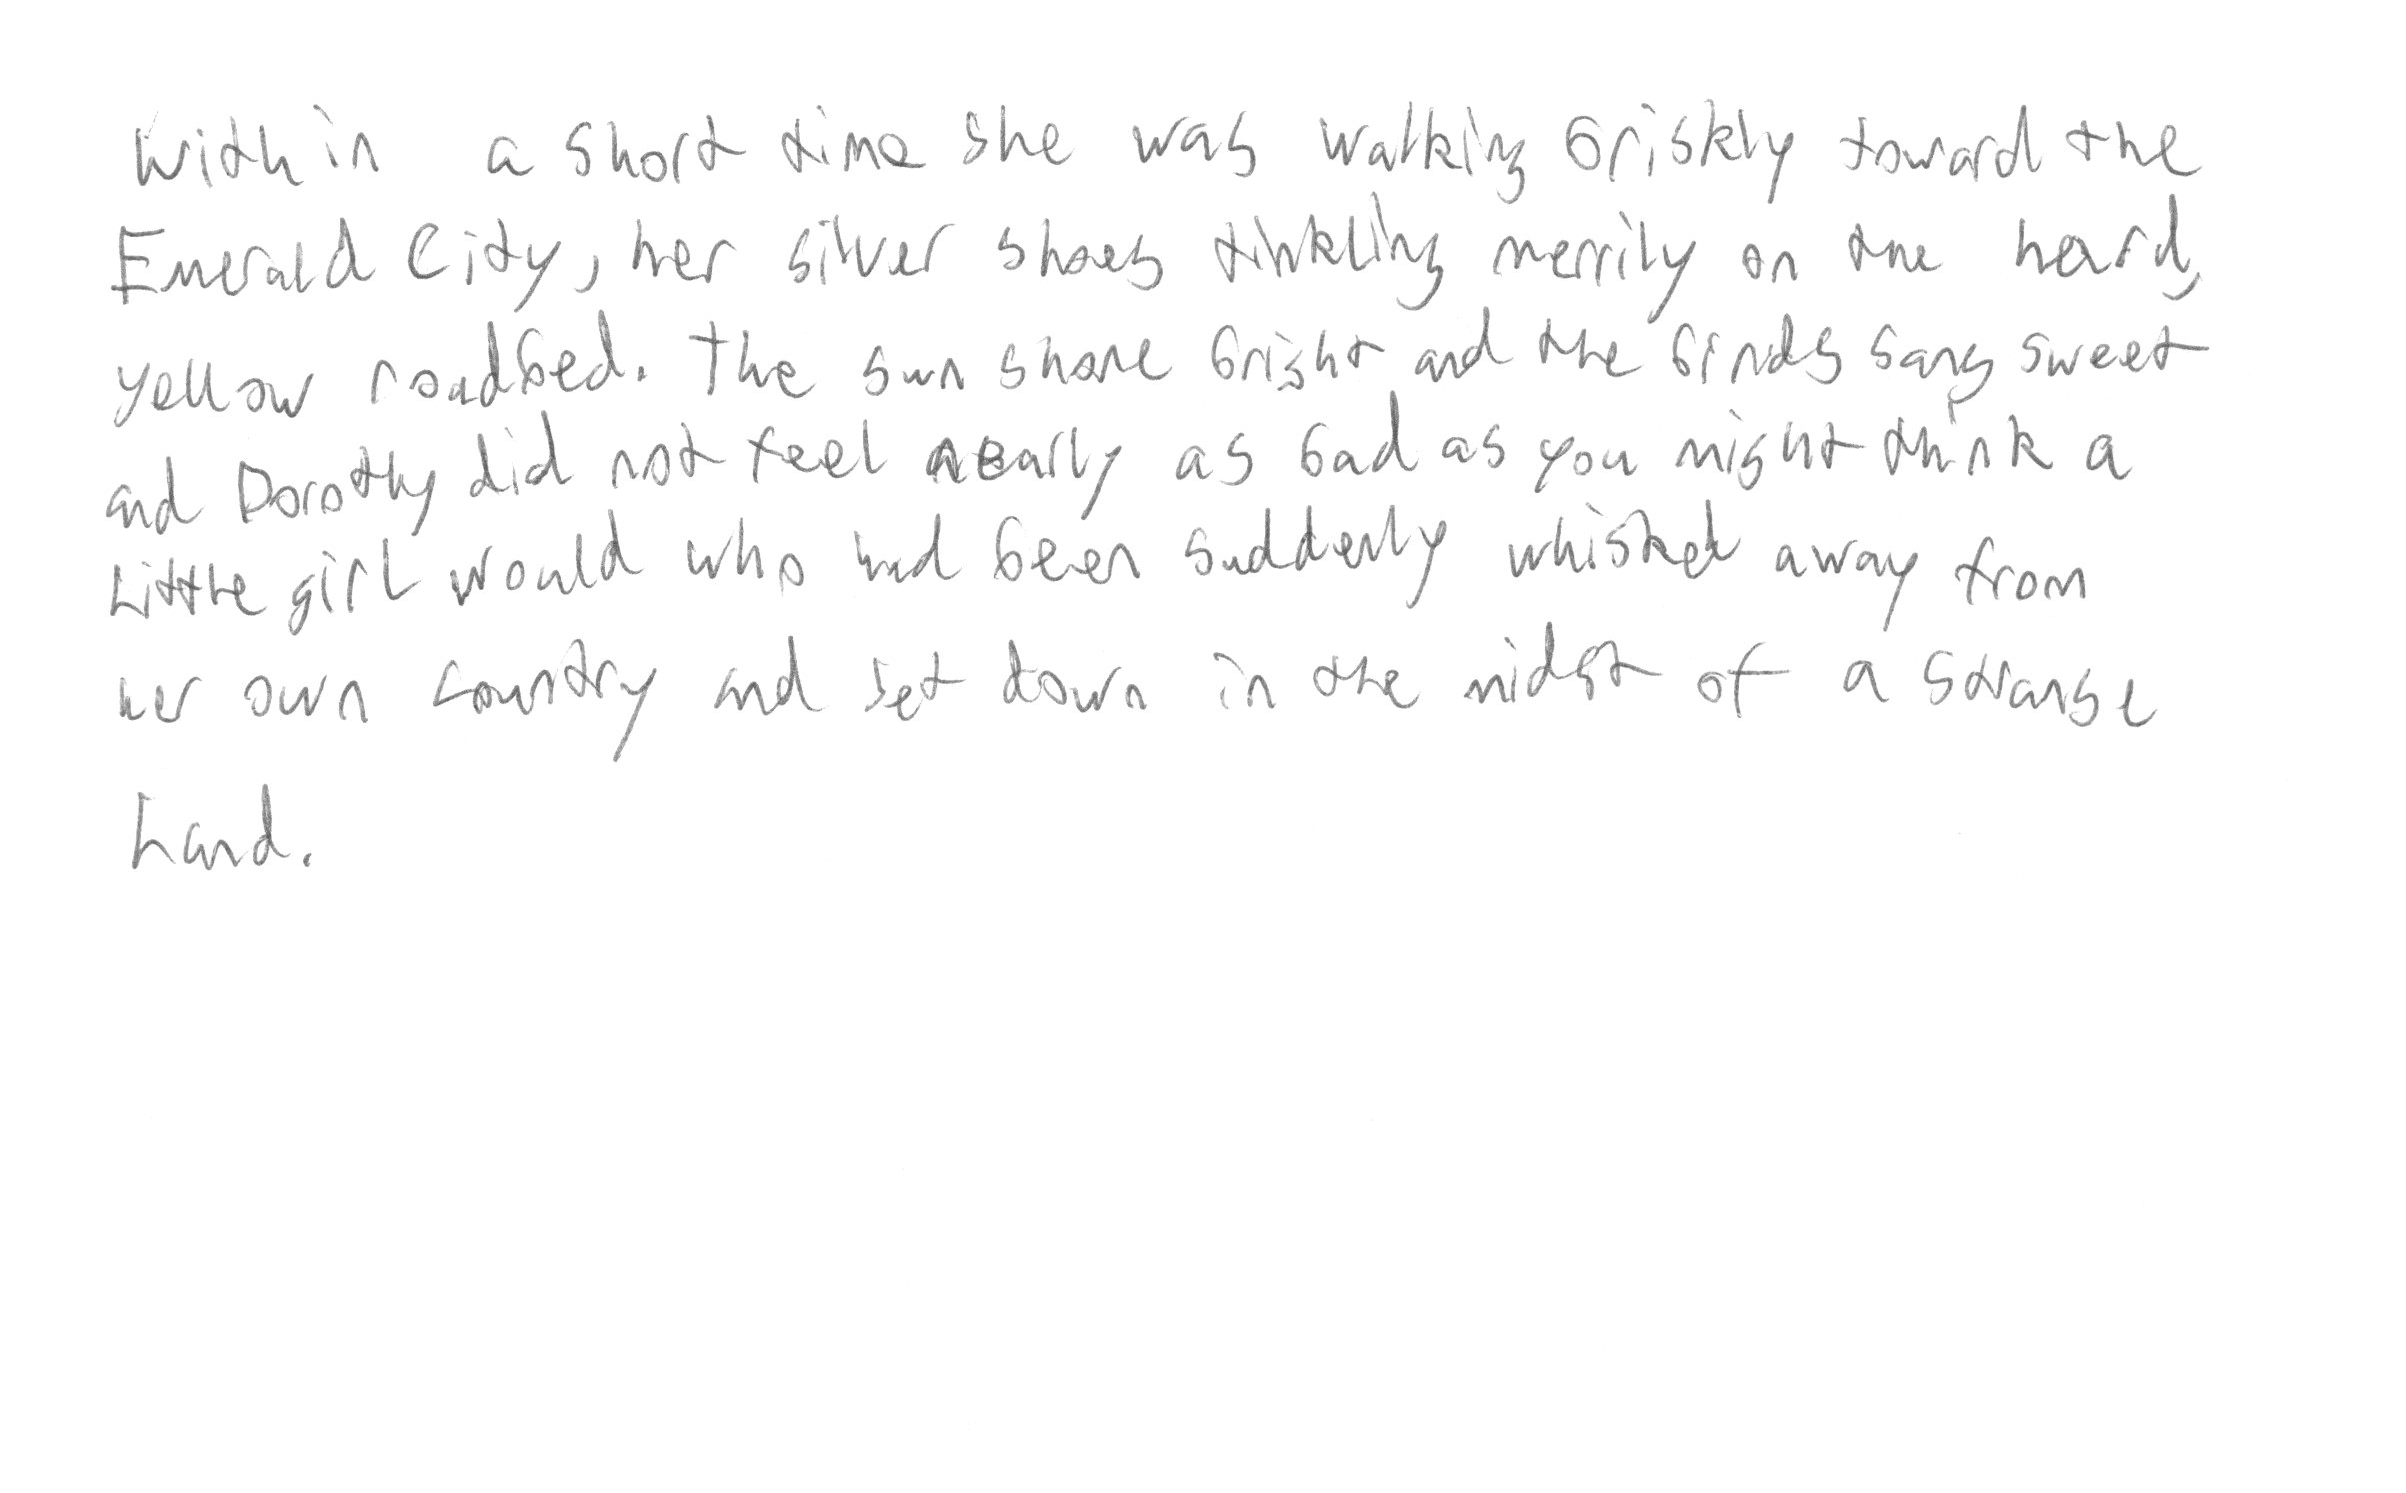 Within a short time she was walking briskly toward the
Emerald City, her silver shoes tinkling merrily on the hard,
yellow roadbed. The sun shone bright and the birds sang sweet
and Dorothy did not feel nearly as bad as you might think a
little girl would who had been suddenly whisked away from
her own country and set down in the midst of a strange
land.